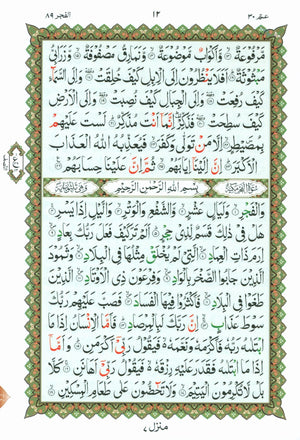 عم ٣٠
١٢
الفجر ٨٩
مَّرْفُوعَةٌ وَّأَكْوَابٌ مَّوْضُوعَةٌ وَّنَمَارِقُ مَصْفُوفَةٌ وَّزَرَابِيُّ
مَبْثُوثَةٌ أَفَلَا يَنْظُرُونَ إِلَى الْإِبِلِ كَيْفَ خُلِقَتْ وَإِلَى السَّمَاءِ
كَيْفَ رُفِعَتْ وَإِلَى الْجِبَالِ كَيْفَ نُصِبَتْ وَإِلَى الْأَرْضِ
كَيْفَ سُطِحَتْ فَذَكِّرْ إِنَّمَا أَنْتَ مُذَكِّرٌ لَسْتَ عَلَيْهِمْ
بِمُصَيْطِرٍ إِلَّا مَنْ تَوَلَّى وَكَفَرَ فَيُعَذِّبُهُ اللَّهُ الْعَذَابَ
الْأَكْبَرَ إِنَّ إِلَيْنَا إِيَابَهُمْ ثُمَّ إِنَّ عَلَيْنَا حِسَابَهُمْ
بِسْمِ اللَّهِ الرَّحْمَٰنِ الرَّحِيمِ
وَالْفَجْرِ وَلَيَالٍ عَشْرٍ وَالشَّفْعِ وَالْوَتْرِ وَاللَّيْلِ إِذَا يَسْرِ
هَلْ فِي ذَٰلِكَ قَسَمٌ لِّذِي حِجْرٍ أَلَمْ تَرَ كَيْفَ فَعَلَ رَبُّكَ بِعَادٍ
إِرَمَ ذَاتِ الْعِمَادِ الَّتِي لَمْ يُخْلَقْ مِثْلُهَا فِي الْبِلَادِ وَثَمُودَ
الَّذِينَ جَابُوا الصَّخْرَ بِالْوَادِ وَفِرْعَوْنَ ذِي الْأَوْتَادِ الَّذِينَ
طَغَوْا فِي الْبِلَادِ فَأَكْثَرُوا فِيهَا الْفَسَادَ فَصَبَّ عَلَيْهِمْ رَبُّكَ
سَوْطَ عَذَابٍ إِنَّ رَبَّكَ لَبِالْمِرْصَادِ فَأَمَّا الْإِنْسَانُ إِذَا مَا
ابْتَلَاهُ رَبُّهُ فَأَكْرَمَهُ وَنَعَّمَهُ فَيَقُولُ رَبِّي أَكْرَمَنِ وَأَمَّا إِذَا مَا
ابْتَلَاهُ فَقَدَرَ عَلَيْهِ رِزْقَهُ فَيَقُولُ رَبِّي أَهَانَنِ كَلَّا
بَلْ لَّا تُكْرِمُونَ الْيَتِيمَ وَلَا تَحَاضُّونَ عَلَى طَعَامِ الْمِسْكِينِ
منزل ٧